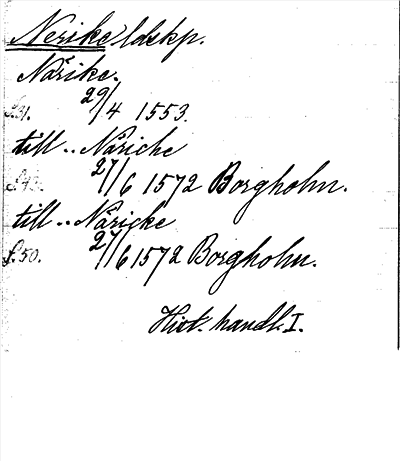 Nerike ldskp.
Närike.
s.31. 29/4 1553.
till .. Näriche
s.43. 27/6 1572 Borgholm.
till .. Näricke
s.50. 27/6 1572 Borgholm.
Hist. handl. I.